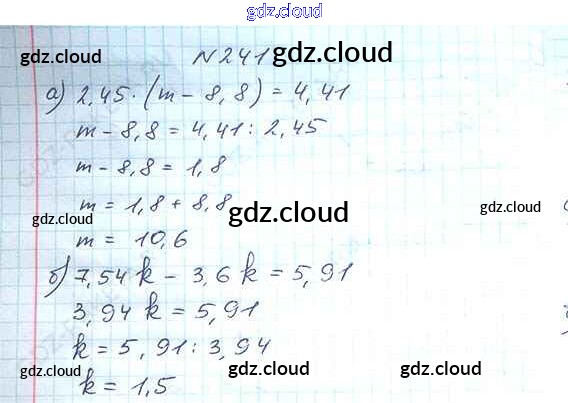 gdz.cloud
№241 gdz.cloud
gdz.cloud
а) 2,45·(m - 8,8) = 4,41
m - 8,8 = 4,41 : 2,45
m - 8,8 = 1,8
m = 1,8 + 8,8
gdz.cloud gdz.cloud gdz.cloud
m = 10,6
б) 7,54k - 3,6k = 5,91
3,94k = 5,91
k = 5,91 : 3,94
k = 1,5
gdz.cloud gdz.cloud gdz.cloud